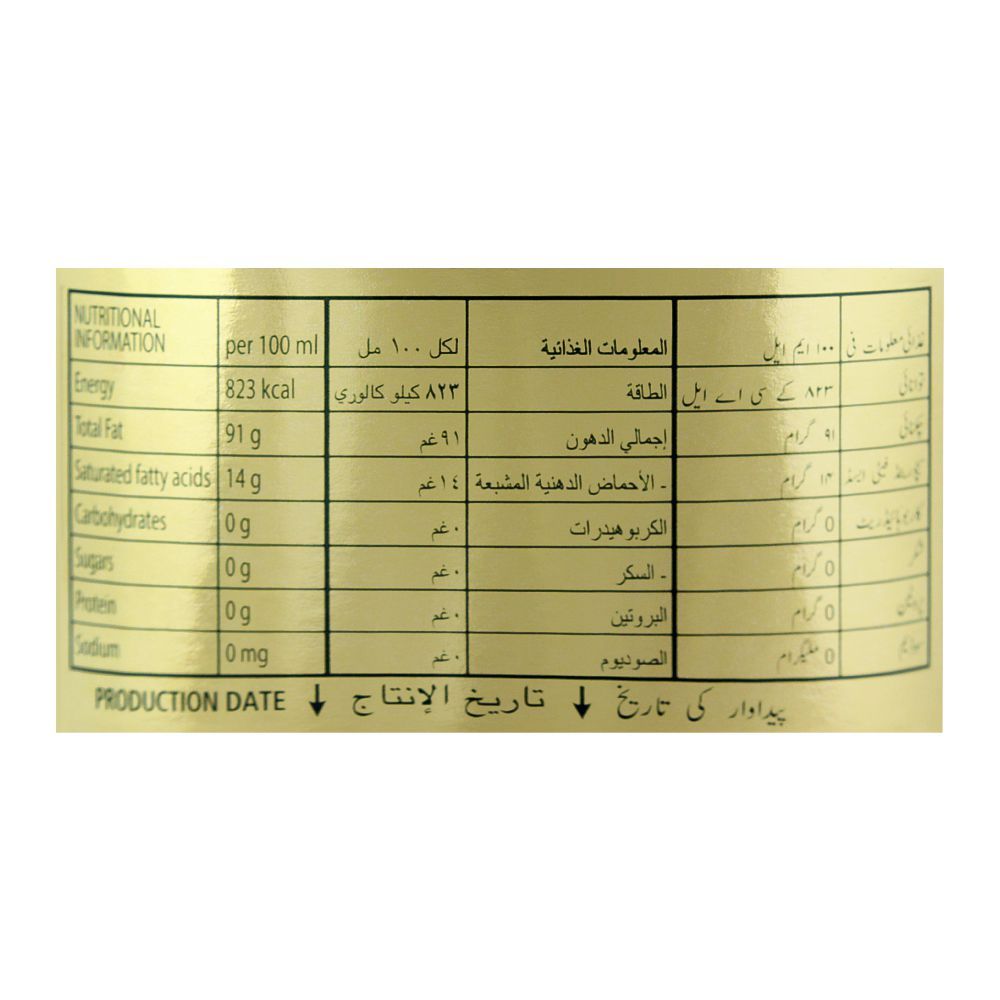 NUTRITIONAL INFORMATION per 100 ml لكل ١٠٠ مل المعلومات الغذائية ۱۰۰ ایم ایل غذائی معلومات فی
Energy 823 kcal ٨٢٣ كيلو كالوري الطاقة ۸۲۳ کے سی اے ایل توانائی
Total Fat 91 g ٩١ غم إجمالي الدهون ۹۱ گرام چکنائی
Saturated fatty acids 14 g ١٤ غم - الأحماض الدهنية المشبعة ۱۴ گرام سیچوریٹڈ فیٹی ایسڈ
Carbohydrates 0 g ٠ غم الكربوهيدرات 0 گرام کاربوہائیڈریٹ
Sugars 0 g ٠ غم - السكر 0 گرام شکر
Protein 0 g ٠ غم البروتين 0 گرام پروٹین
Sodium 0 mg ٠ غم الصوديوم 0 ملیگرام سوڈیم
PRODUCTION DATE ↓ تاريخ الإنتاج ↓ پیداوار کی تاریخ